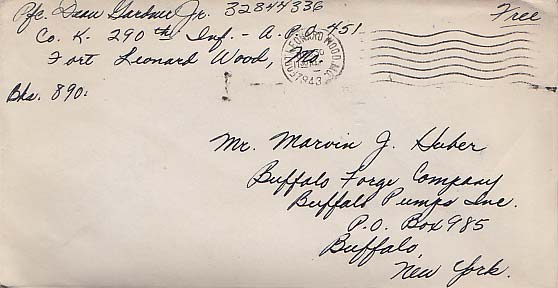 Pfc. Dean Gardner Jr. 32844336
Free
Co. K- 290th Inf.- A.P.O. 451
Fort Leonard Wood, Mo.
FORT LEONARD WOOD, MO.
1943
Bks. 890.
Mr. Marvin J. Huber
Buffalo Forge Company
Buffalo Pumps Inc.
P.O. Box 985
Buffalo,
New York.